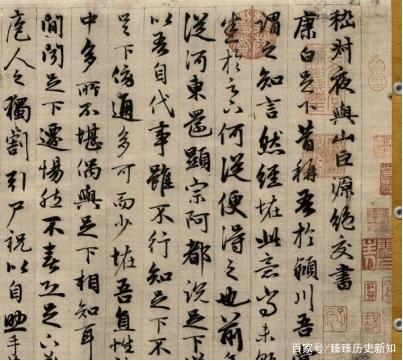 嵇叔夜與山巨源絕交書
康白足下昔稱吾於潁川吾
謂之知言然經怪此意尚未
於足下何從便得之也前年
從河東還顯宗阿都說足下
以吾自代事雖不行知足下
足下傍通多可而少怪吾直性
中多所不堪偶與足下相知耳
間聞足下遷惕然不喜恐足下
庖人之獨割引尸祝以自助手
百家号/臻臻历史新知